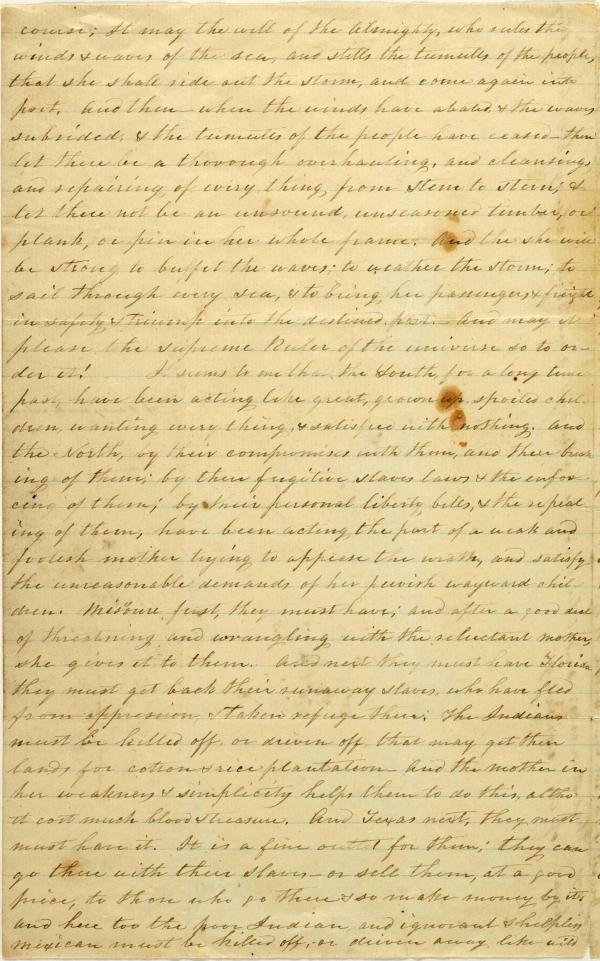 course; It may the will of the Almighty, who rules the
winds & waves of the sea, and stills the tumults of the people,
that she shall ride out the storm, and come again into
port. And then when the winds have abated & the waves
subsided, & the tumults of the people have ceased - then
let there be a thorough overhauling, and cleansing,
and repairing of every thing from stem to stern; &
let there not be an unsound, unseasoned timber, or
plank, or pin in her whole frame. And the she will
be strong to buffet the waves; to weather the storm; to
sail through every sea, & to bring her passengers & freight
in safety & triump into the destined port - And may it
please the Supreme Ruler of the universe so to or-
der it! It seems to me that the South, for a long time
past, have been acting like great, grown up spoiled chil-
dren, wanting every thing, & satisfied with nothing. And
the North, by their compromises with them, and their break
ing of them; by their fugitive slaves laws & the enfor-
cing of them; by their personal liberty bills, & the repeal
ing of them, have been acting the part of a weak and
foolish mother trying to appease the wrath, and satisfy
the unreasonable demands of her pevish wayward chil-
dren. first, they must have; and after a good deal
of threatning and wrangling with the reluctant mother,
she gives it to them. And next they must have Florida
they must get back their runaway slaves, who have fled
from oppression & taken refuge there; The Indians
must be killed off or driven off that may get their
lands for cotton & rice plantation - And the mother in
her weakness & simplicity helps them to do this, altho
it cost much blood & treasure. And Texas next, they must
must have it. It is a fine outlet for them; they can
go there with their slaves - or sell them, at a good
price, to those who go there & so make money by it;
and here too the poor Indian, and ignorant & helpless
mexican must be killed off, or driven away like wild